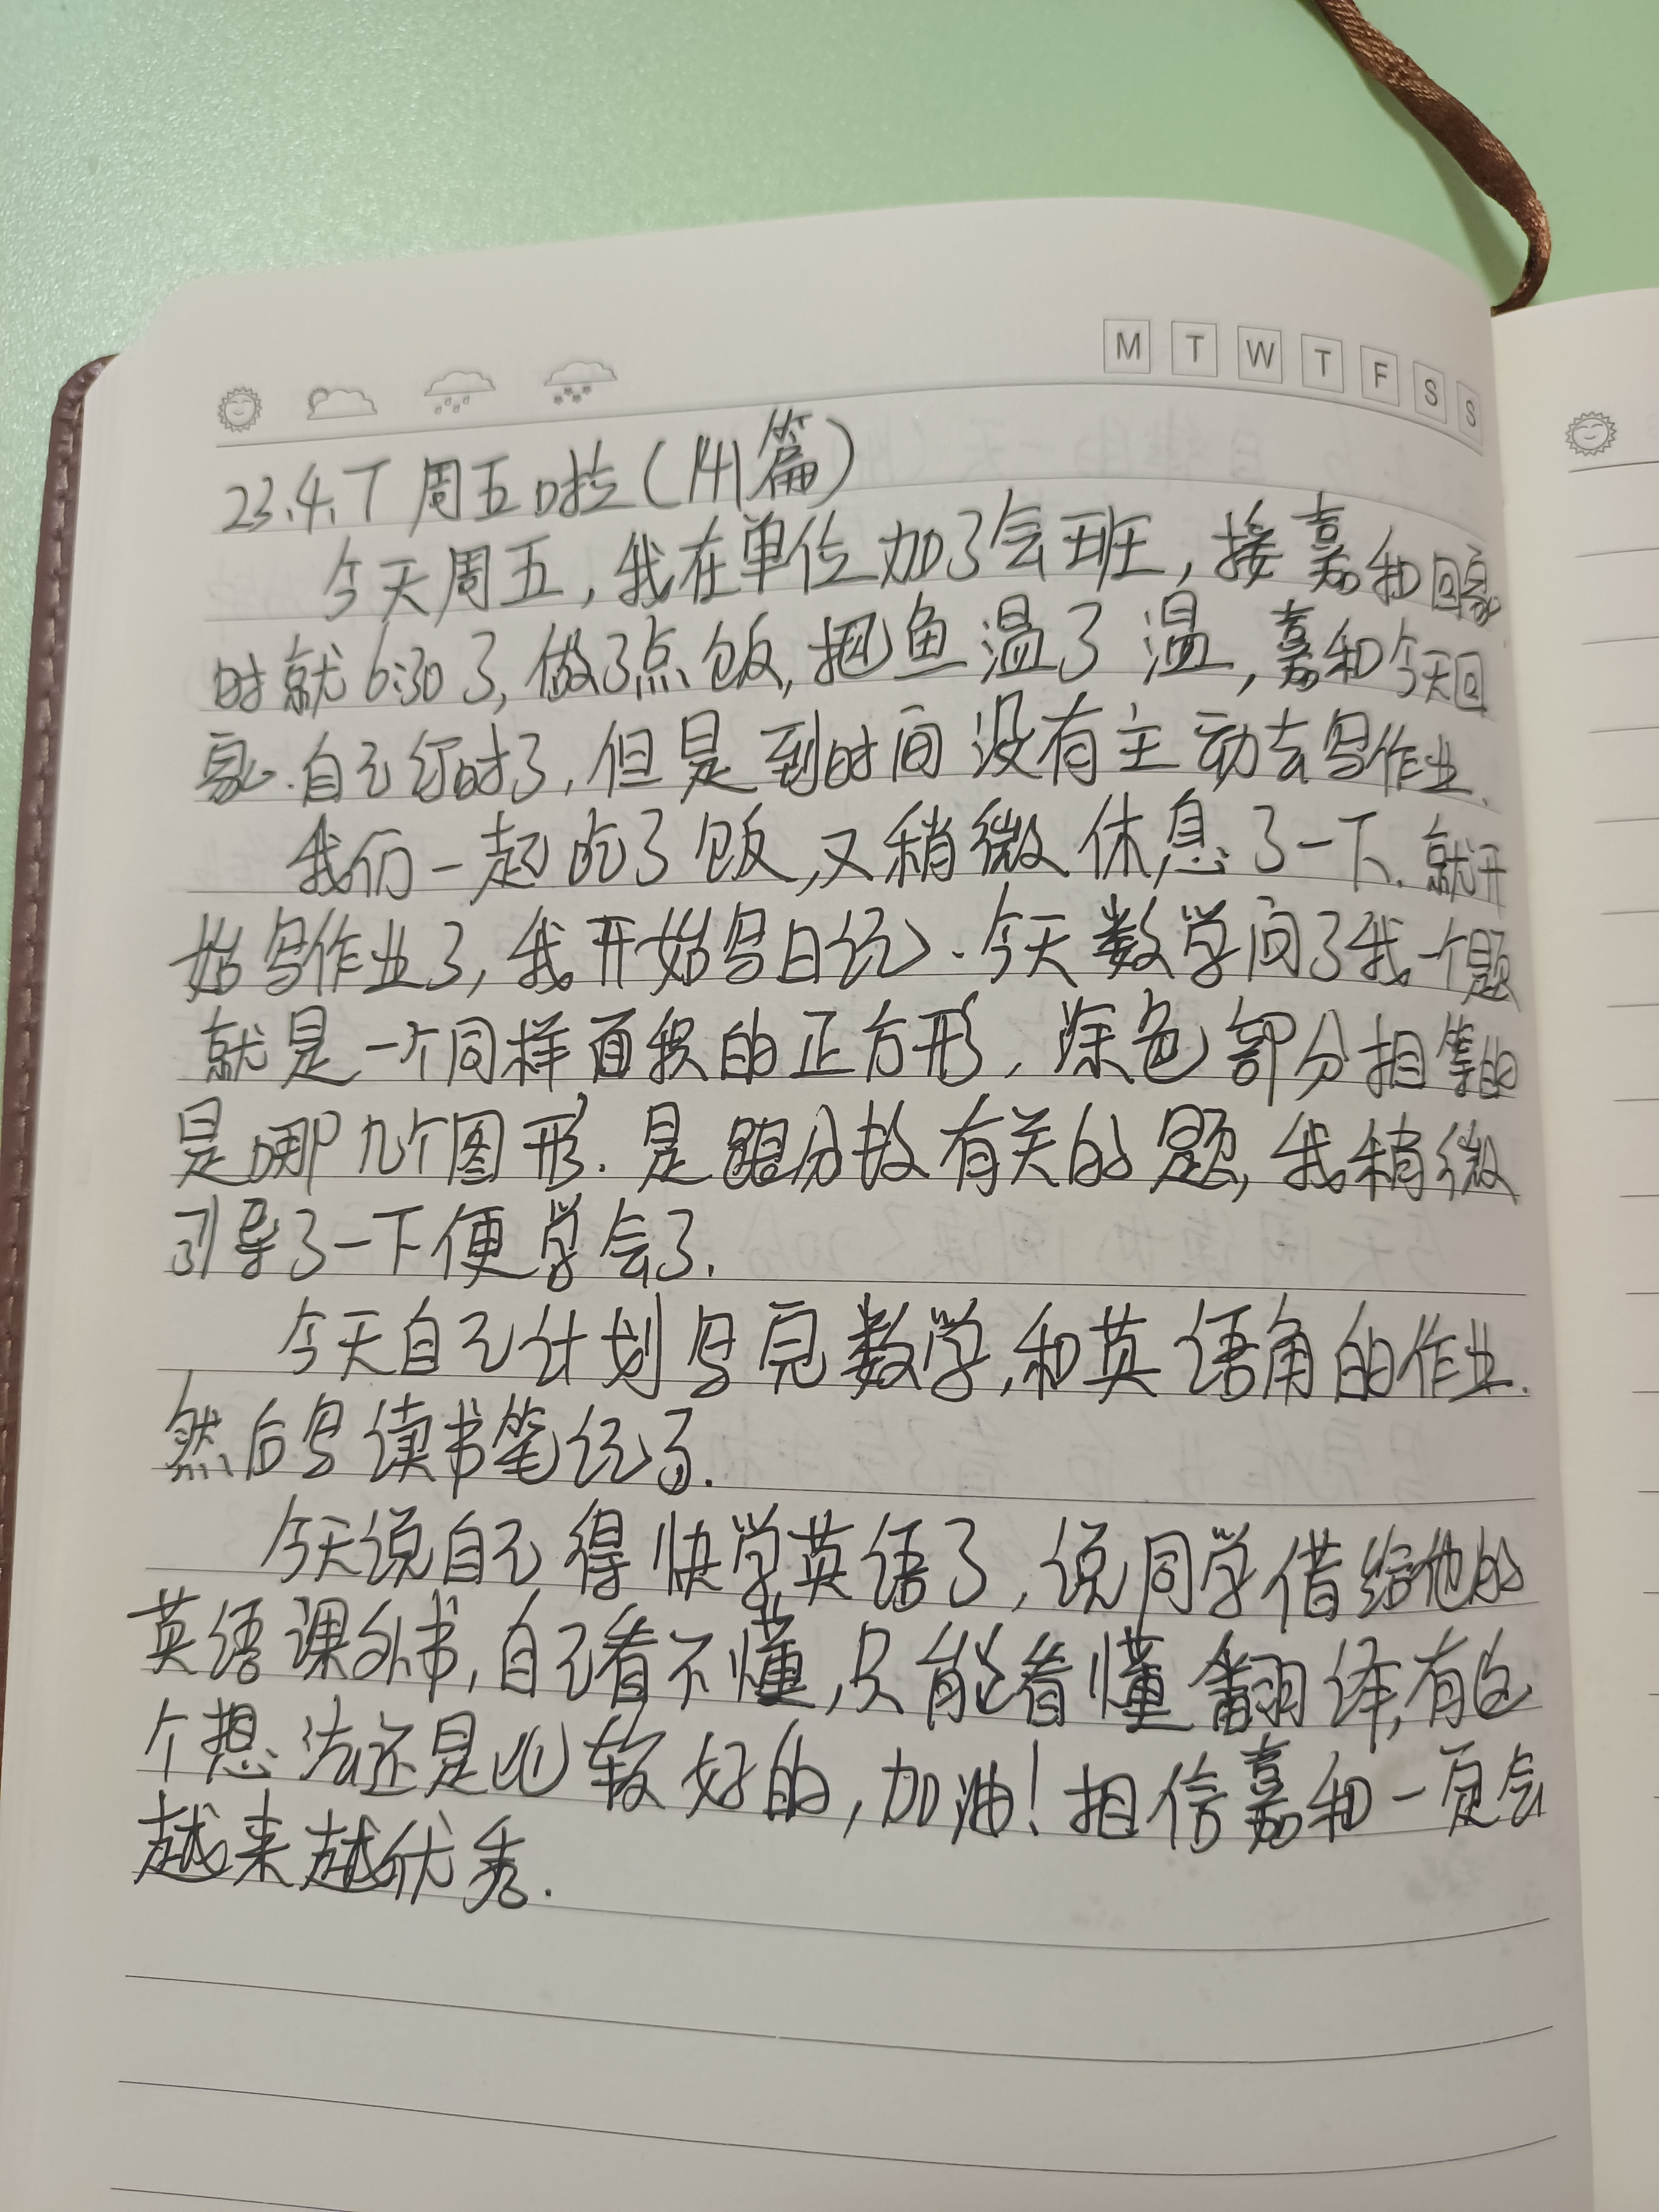 M T W T F S S
23.4.7 周五啦(141篇)
今天周五,我在单位加了会班,接嘉和回家
时就6:30了,做了点饭,把鱼温了温,嘉和今天回
家.自己订时了,但是到时间没有主动去写作业.
我们一起吃了饭,又稍微休息了一下.就开
始写作业了,我开始写日记.今天数学问了我一个题
就是一个同样面积的正方形,涂色部分相等的
是哪几个图形.是跟分数有关的题,我稍微
引导了一下便学会了.
今天自己计划写完数学,和英语角的作业.
然后写读书笔记了.
今天说自己得快学英语了,说同学借给他的
英语课外书,自己看不懂,只能看懂翻译,有这
个想法还是比较好的,加油!相信嘉和一定会
越来越优秀.